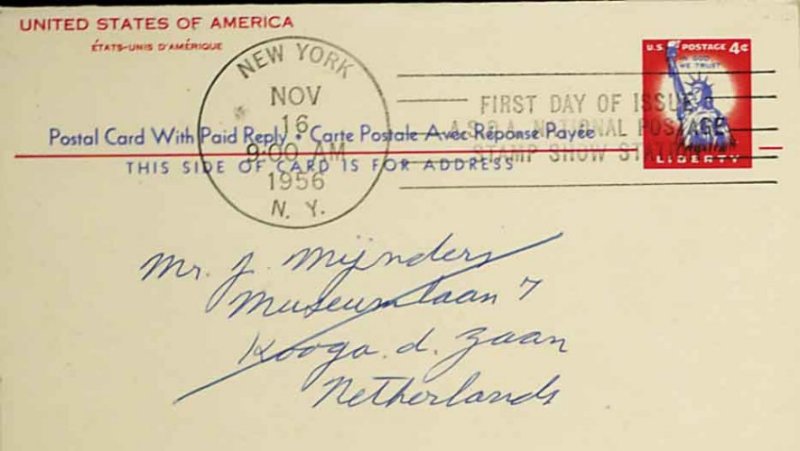 UNITED STATES OF AMERICA
ÉTATS-UNIS D'AMÉRIQUE
NEW YORK
NOV
16
9:00 AM
1956
N. Y.
FIRST DAY OF ISSUE
A.S.D.A. NATIONAL POSTAGE
STAMP SHOW STATION
U.S. POSTAGE 4¢
IN GOD
WE TRUST
LIBERTY
Postal Card With Paid Reply • Carte Postale Avec Réponse Payée
THIS SIDE OF CARD IS FOR ADDRESS
Mr. J. Mijnders
Museumlaan 7
Kooga. d. Zaan
Netherlands